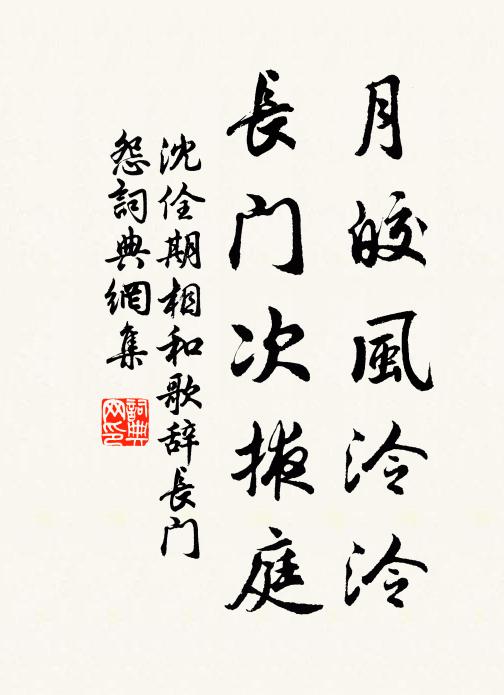 月皎風泠泠
長门次掖庭
沈佺期相和歌辞長门
怨詞典網集
詞典
网印